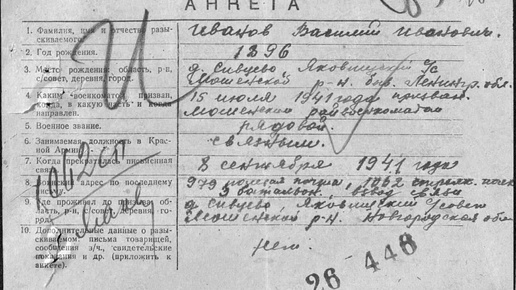 АНКЕТА
1. Фамилия, имя и отчество разыскиваемого. Иванов Василий Иванович.
2. Год рождения. 1896
3. Место рождения: область, р-н, с/совет, деревня, город. д. Сивцево Яковищский с/с
Мошенской р-н быв. Ленингр. обл.
4. Каким военкоматом призван, когда, в какую часть и куда направлен. 15 июля 1941 года призван
Мошенским райвоенкоматом
5. Военное звание. рядовой.
6. Занимаемая должность в Красной Армии. связным.
7. Когда прекратилась письменная связь. 8 сентября 1941 года
8. адрес по последнему 939 полевая почта, 1052 стрелк. полк
батальон, взвод связи
9. Где проживал до призыва область, р-н, с/совет, деревня, город. д. Сивцево Яковищский с/совет
Мошенской р-н. Новгородская обл.
10. Дополнительные данные о разыскиваемом: письма товарищей, сообщения з/ч., свидетельские показания и др. (приложить к анкете). нет.
И
1052 сп
26 448